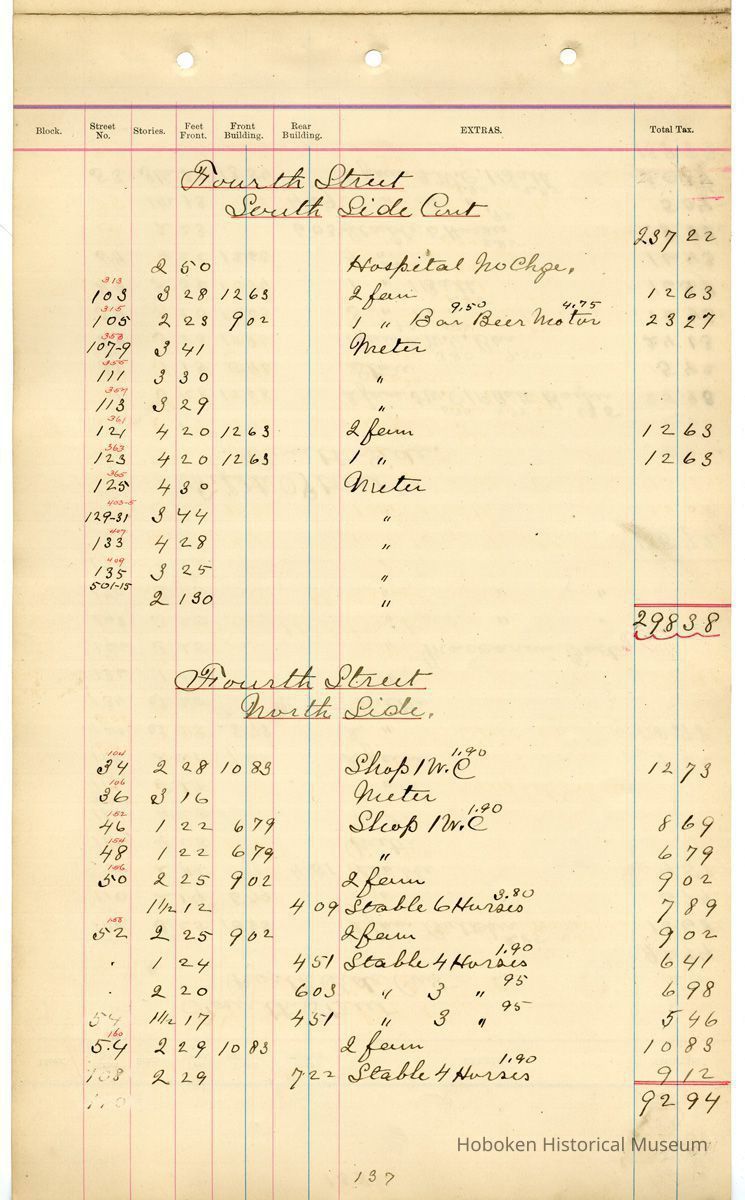 Block. Street No. Stories. Feet Front. Front Building. Rear Building. EXTRAS. Total Tax.
Fourth Street
South Side Cont
237 22
2 50 Hospital No Chge.
313
103 3 28 12 63 2 fam 12 63
315 9.50 4.75
105 2 23 9 02 1 " Bar Beer Motor 23 27
353
107-9 3 41 Meter
355
111 3 30 "
357
113 3 29 "
361
121 4 20 12 63 2 fam 12 63
363
123 4 20 12 63 1 " 12 63
365
125 4 30 Meter
403-5
129-31 3 44 "
407
133 4 28 "
409
135 3 25 "
501-15
2 130 "
298 38
Fourth Street
North Side.
104 1.90
34 2 28 10 83 Shop 1 W.C 12 73
106
36 3 16 Meter
152 1.90
46 1 22 6 79 Shop 1 W.C 8 69
154
48 1 22 6 79 " 6 79
156
50 2 25 9 02 2 fam 9 02
3.80
1 1/2 12 4 09 Stable 6 Horses 7 89
158
52 2 25 9 02 2 fam 9 02
1.90
. 1 24 4 51 Stable 4 Horses 6 41
95
. 2 20 6 03 " 3 " 6 98
95
54 1 1/2 17 4 51 " 3 " 5 46
160
54 2 29 10 83 2 fam 10 83
1.90
108 2 29 7 22 Stable 4 Horses 9 12
110 92 94
Hoboken Historical Museum
137